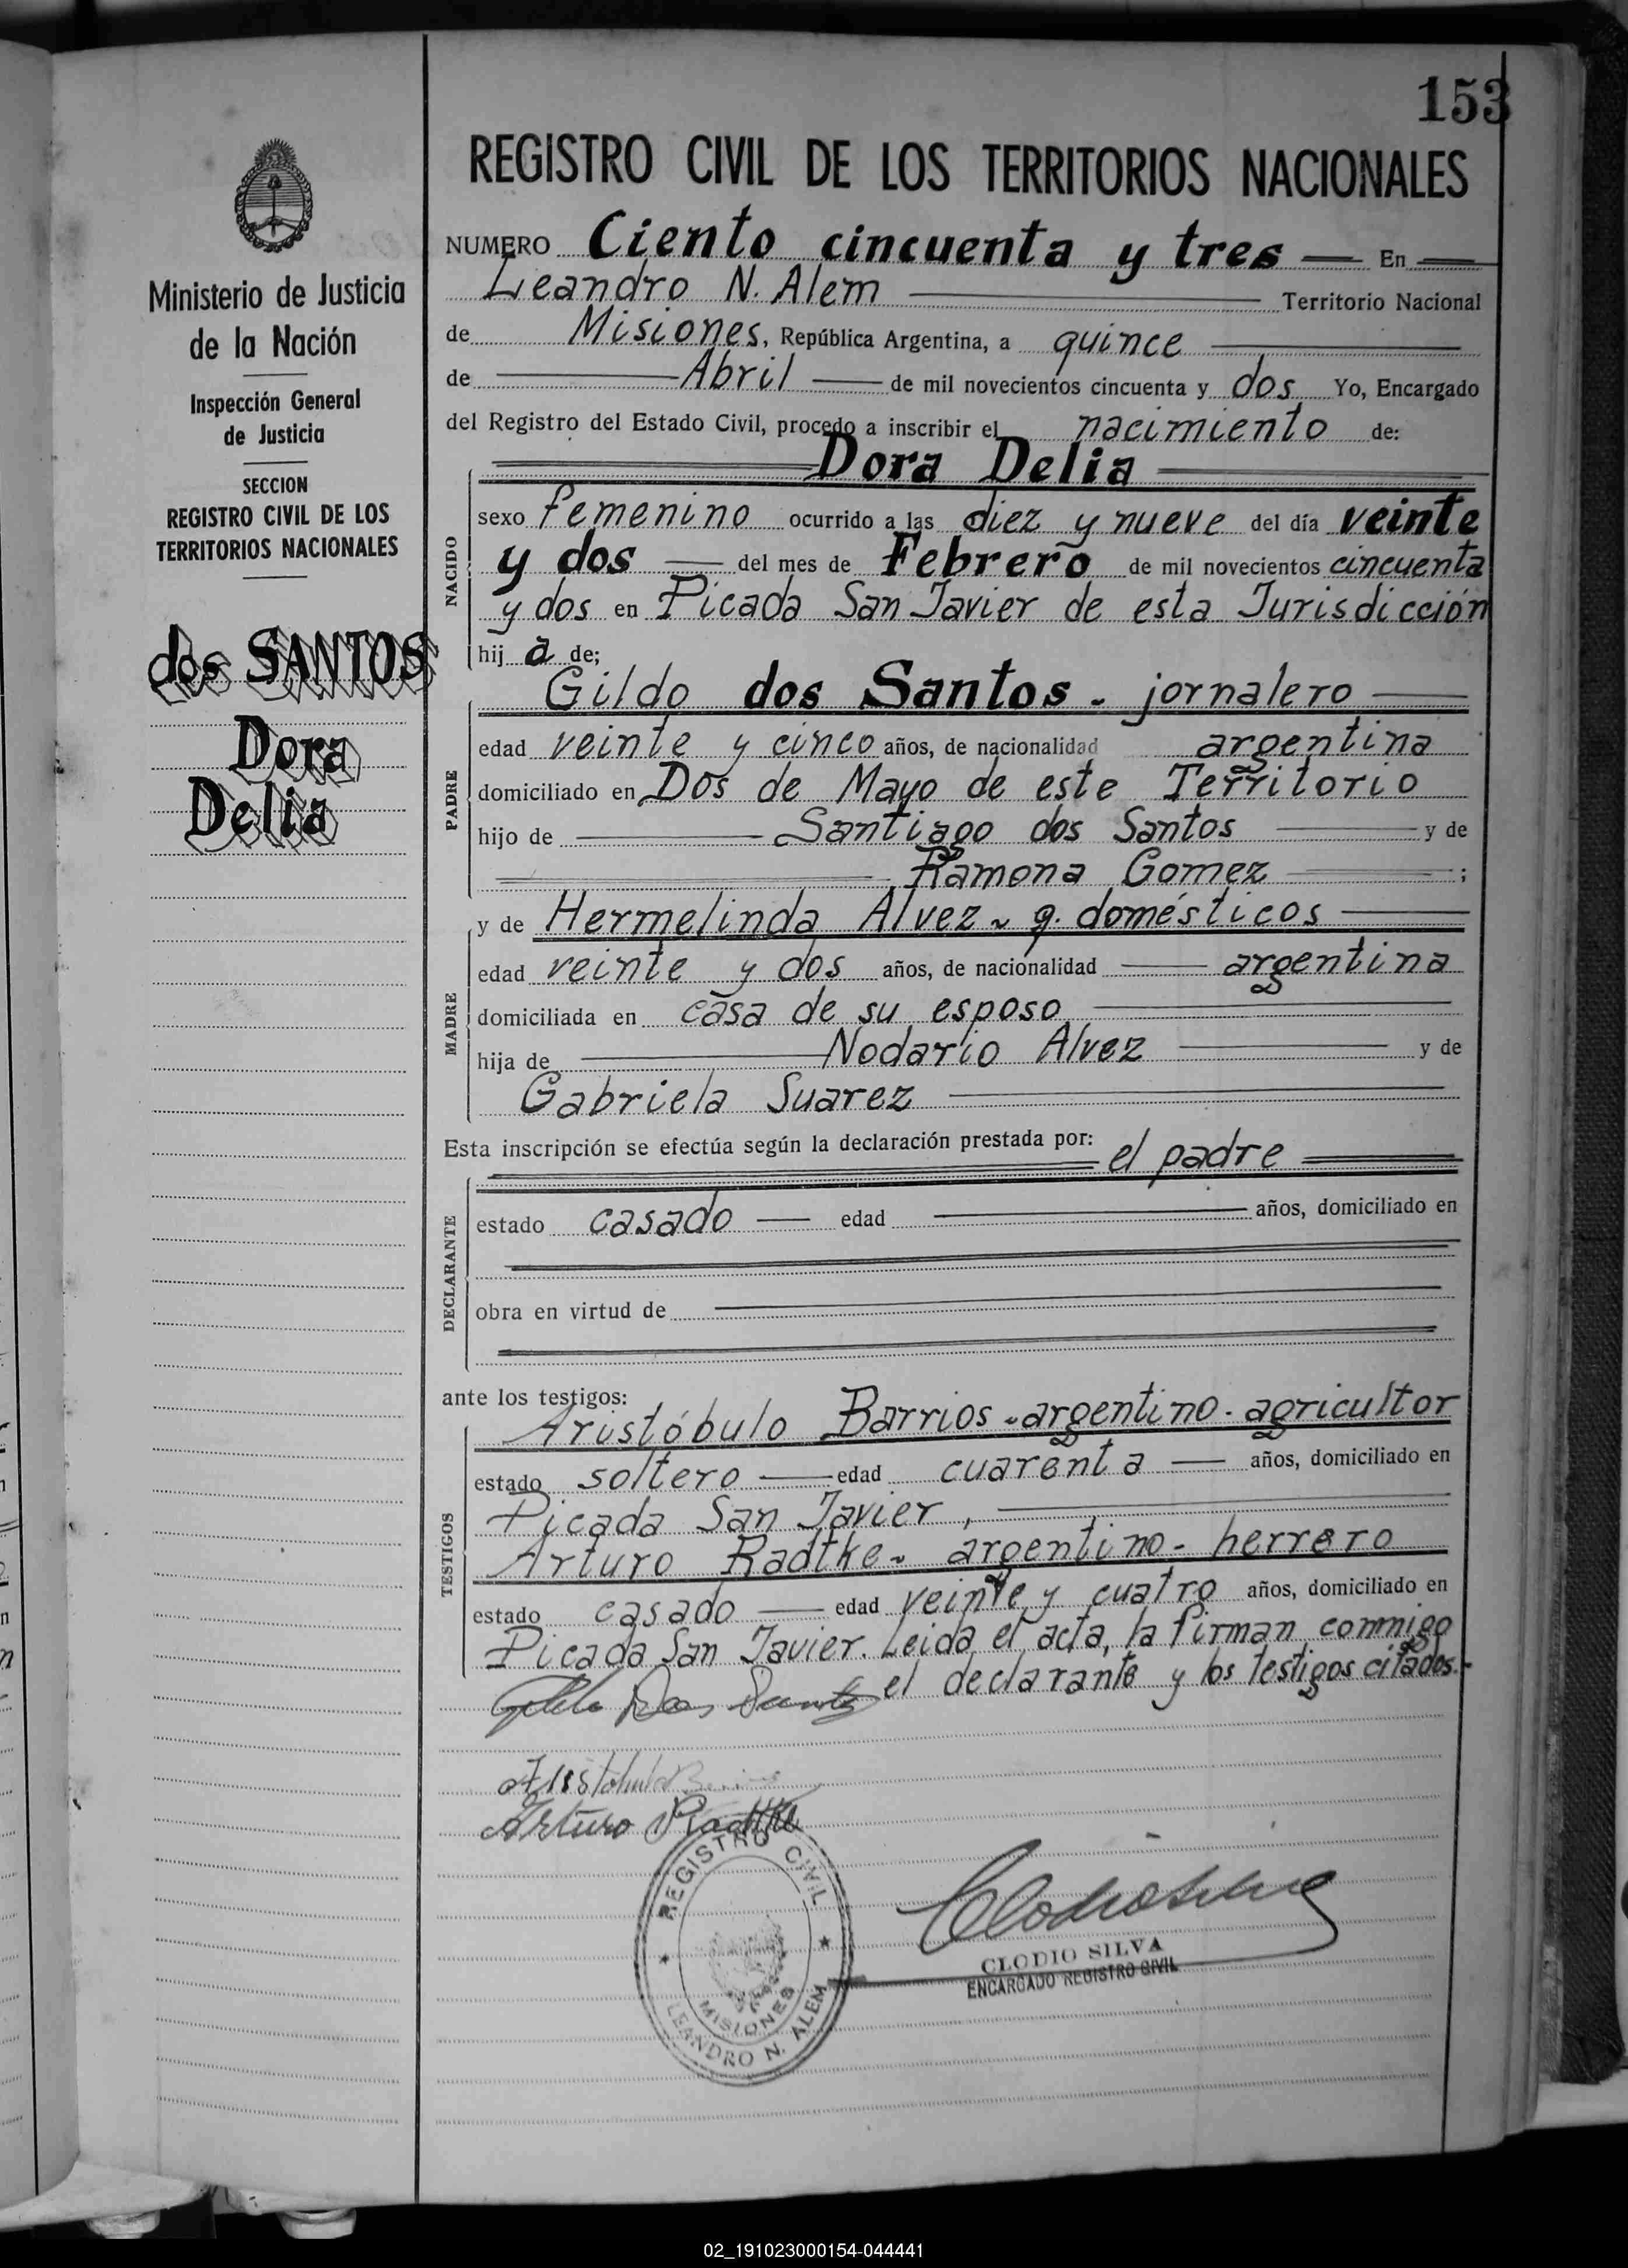 153
Ministerio de Justicia
de la Nación
Inspección General
de Justicia
SECCION
REGISTRO CIVIL DE LOS
TERRITORIOS NACIONALES
dos SANTOS
Dora
Delia
REGISTRO CIVIL DE LOS TERRITORIOS NACIONALES
NUMERO Ciento cincuenta y tres — En —
Leandro N. Alem — Territorio Nacional
de Misiones, República Argentina, a quince —
de — Abril — de mil novecientos cincuenta y dos Yo, Encargado
del Registro del Estado Civil, procedo a inscribir el nacimiento de:
Dora Delia
NACIDO
sexo femenino ocurrido a las diez y nueve del día veinte
y dos — del mes de Febrero de mil novecientos cincuenta
y dos en Picada San Javier de esta Jurisdicción
hij a de;
Gildo dos Santos - jornalero —
PADRE
edad veinte y cinco años, de nacionalidad argentina
domiciliado en Dos de Mayo de este Territorio
hijo de — Santiago dos Santos — y de
— Ramona Gomez — ;
y de Hermelinda Alvez - q. domésticos —
MADRE
edad veinte y dos años, de nacionalidad — argentina
domiciliada en casa de su esposo —
hija de — Nodario Alvez — y de
Gabriela Suarez —
Esta inscripción se efectúa según la declaración prestada por: el padre —
DECLARANTE
estado casado — edad — años, domiciliado en
obra en virtud de —
ante los testigos:
TESTIGOS
Aristóbulo Barrios - argentino - agricultor
estado soltero — edad cuarenta — años, domiciliado en
Picada San Javier, —
Arturo Radtke - argentino - herrero
estado casado — edad veinte y cuatro años, domiciliado en
Picada San Javier. Leida el acta, la firman conmigo
el declarante y los testigos citados.-
Dos Santos
Arturo Radtke
REGISTRO CIVIL
MISIONES
LEANDRO N. ALEM
CLODIO SILVA
ENCARGADO REGISTRO CIVIL
02_191023000154-044441